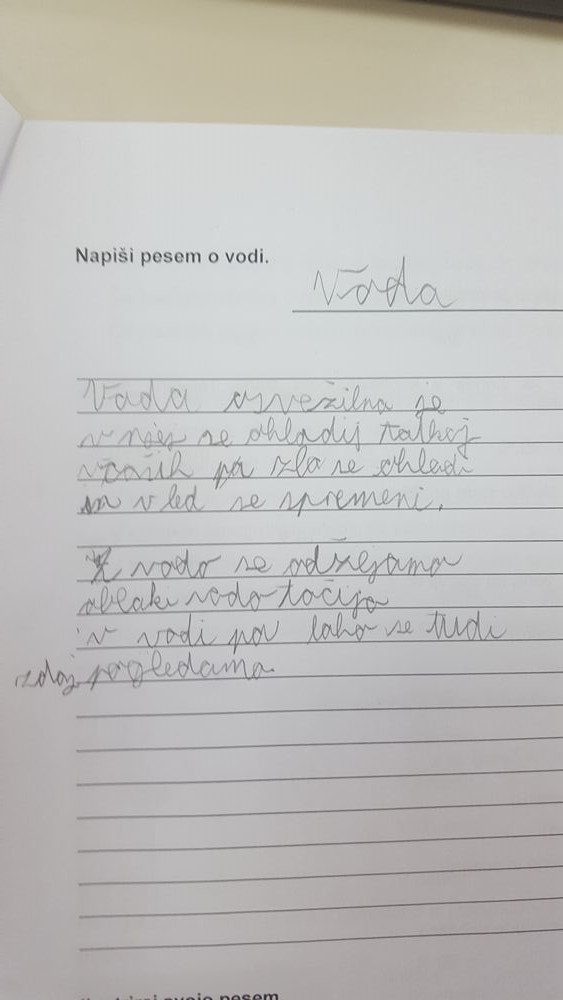 Napiši pesem o vodi.
Voda
Voda osvežilna je
v nas se ohladi takoj
včasih pa zlo se ohladi
in v led se spremeni.
Z vodo se odžejamo
oblaki vodo točijo
v vodi pa lahko se tudi
zdaj pogledamo
svojo pesem